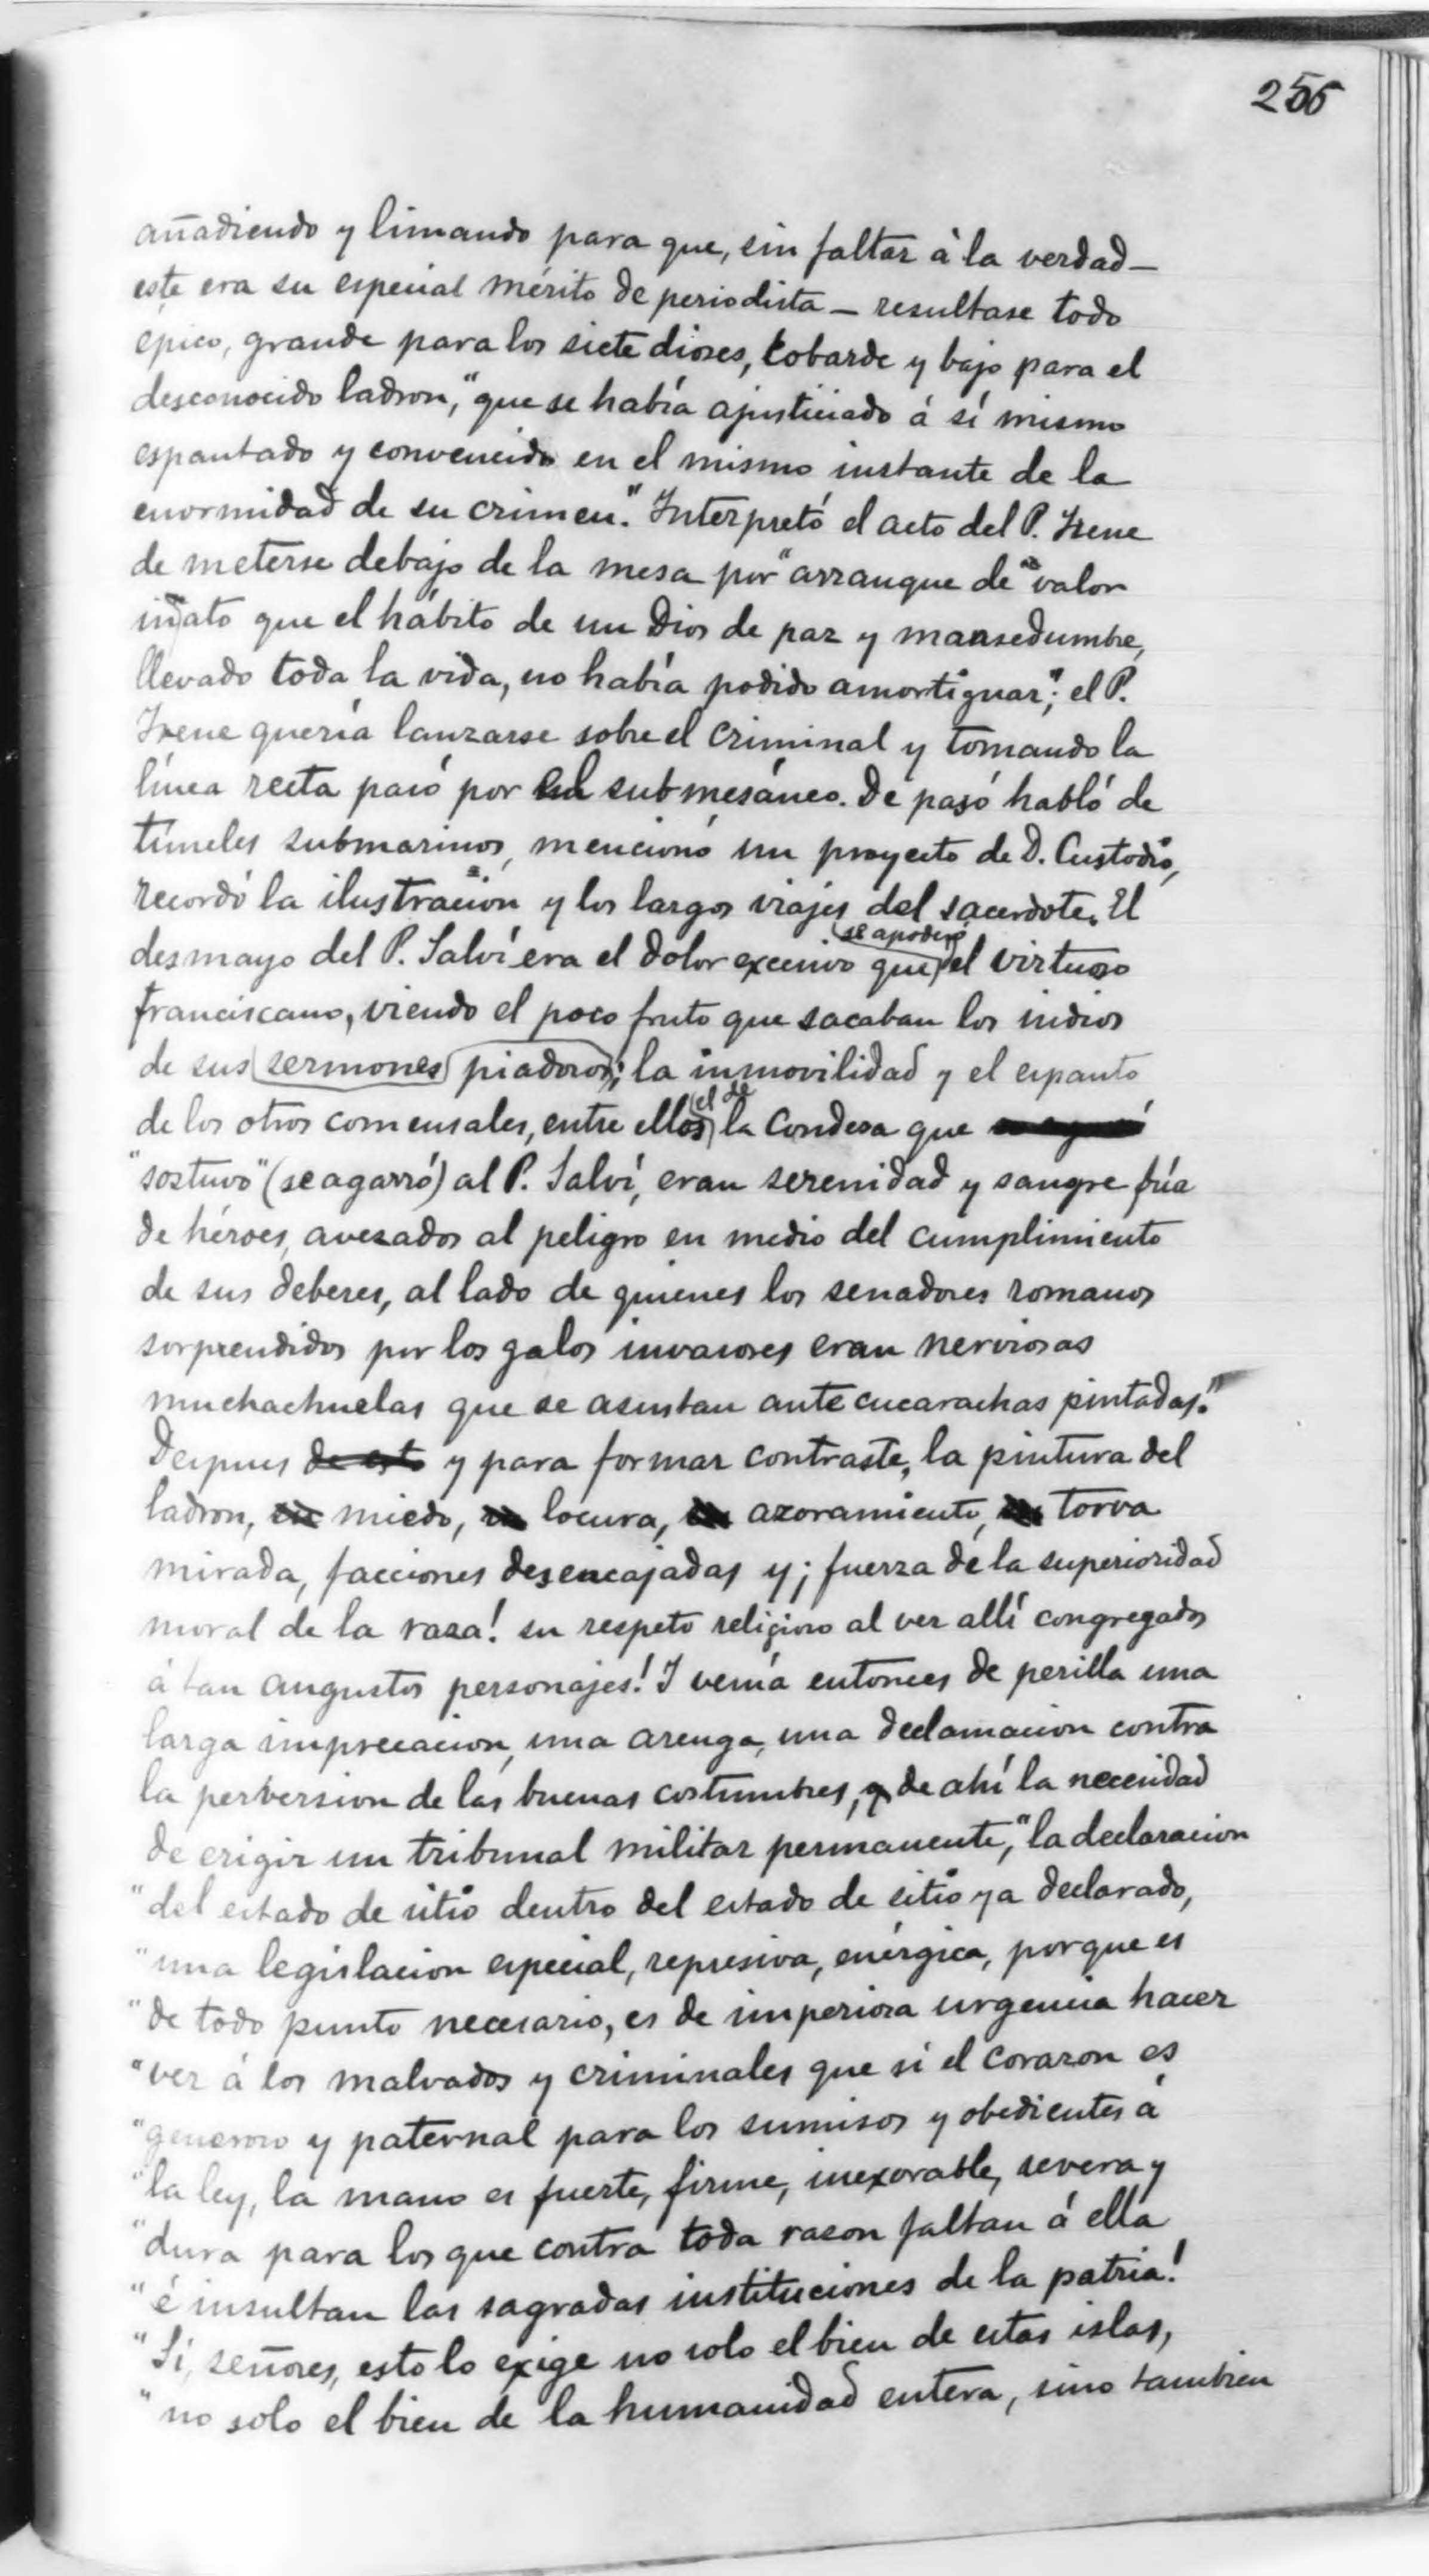 255
añadiendo y limando para que, sin faltar à la verdad—
este era su especial mérito de periodista — resultase todo
epico, grande para los siete dioses, cobarde y bajo para el
desconocido ladron, "que se había ajusticiado á sí mismo
espantado y convencido en el mismo instante de la
enormidad de su crimen." Interpretó el acto del P. Irene
de meterse debajo de la mesa por "arranque de valor
innato que el hábito de un Dios de paz y mansedumbre,
llevado toda la vida, no había podido amortiguar"; el P.
Irene quería lanzarse sobre el criminal y tomando la
línea recta pasó por el submesáneo. De paso habló de
túneles submarinos, mencionó un proyecto de D. Custodio,
recordó la ilustracion y los largos viajes del sacerdote. El
desmayo del P. Salví era el dolor excesivo que se apoderó el virtuoso
franciscano, viendo el poco fruto que sacaban los indios
de sus sermones piadosos; la inmovilidad y el espanto
de los otros comensales, entre ellos el de la Condesa que
"sostuvo" (se agarró) al P. Salví, eran serenidad y sangre fría
de héroes, avezados al peligro en medio del cumplimiento
de sus deberes, al lado de quienes los senadores romanos
sorprendidos por los galos invasores eran nerviosas
muchachuelas que se asustan ante cucarachas pintadas."
Despues de esto y para formar contraste, la pintura del
ladron, miedo, locura, azoramiento, torva
mirada, facciones desencajadas y ¡fuerza de la superioridad
moral de la raza! su respeto religioso al ver allí congregados
á tan augustos personajes! I venía entonces de perilla una
larga imprecacion, una arenga, una declamacion contra
la perversion de las buenas costumbres, y de ahí la necesidad
de erigir un tribunal militar permanente, "la declaracion
"del estado de sitio dentro del estado de sitio ya declarado,
"una legislacion especial, represiva, enérgica, porque es
"de todo punto necesario, es de imperiosa urgencia hacer
"ver á los malvados y criminales que si el corazon es
"generoso y paternal para los sumisos y obedientes á
"la ley, la mano es fuerte, firme, inexorable, severa y
"dura para los que contra toda razon faltan á ella
"é insultan las sagradas instituciones de la patria!
"Sí, señores, esto lo exige no solo el bien de estas islas,
"no solo el bien de la humanidad entera, sino tambien